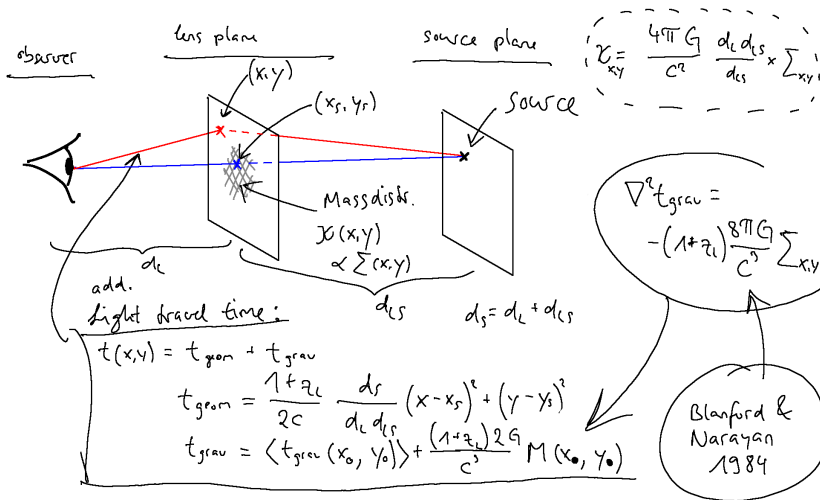 observer
lens plane
source plane
(x,y)
(xₛ, yₛ)
source
Massdistr.
ϰ(x,y)
∝ Σ(x,y)
d_L
d_LS
d_s = d_L + d_LS
ϰ_x,y = 4πG/c² d_L d_LS/d_LS × Σ_x,y
∇² t_grav =
-(1+z_L) 8πG/c³ Σ_x,y
add.
light travel time:
t(x,y) = t_geom + t_grav
t_geom = 1+z_L/2c d_s/d_L d_LS (x-xₛ)² + (y-yₛ)²
t_grav = ⟨t_grav(x₀, y₀)⟩ + (1+z_L)2G/c³ M(x₀, y₀)
Blanford &
Narayan
1984